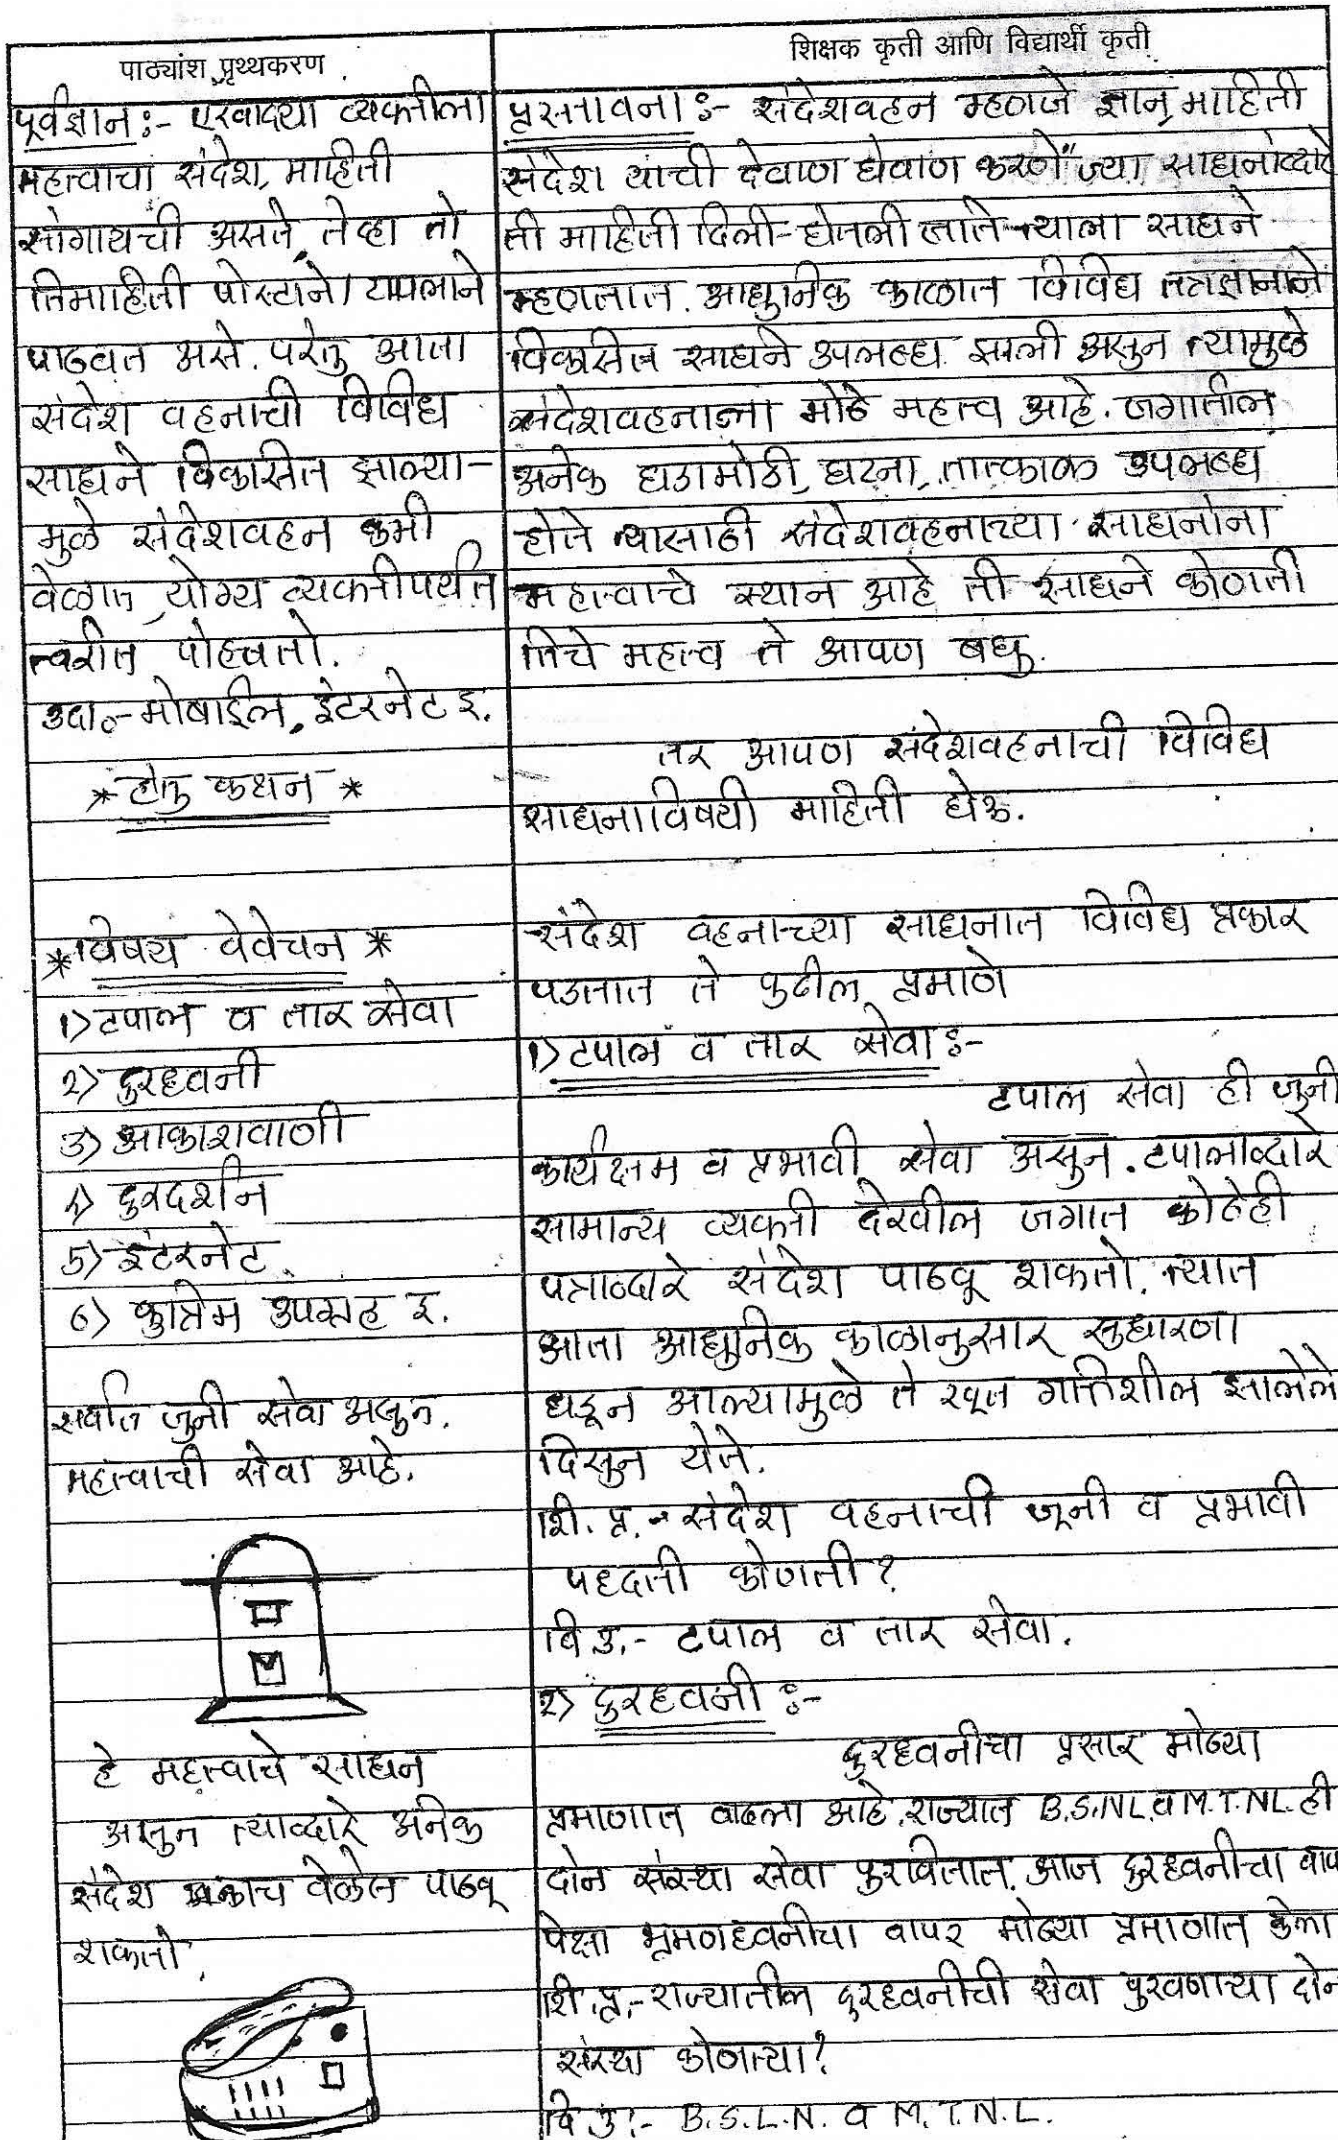 पाठ्यांश पृथ्थकरण
पूर्वज्ञान :- एखाद्या व्यक्तीला
महत्वाचा संदेश, माहिती
सांगायची असते, तेव्हा तो
तिमाहिती पोस्टाने/ टापलाने
पाठवत असे. परंतु आता
संदेश वहनाची विविध
साधने विकसित झाल्या-
मुळे संदेशवहन कमी
वेळात, योग्य व्यक्तीपर्यंत
त्वरीत पोहचतो.
उदा०- मोबाईल, इंटरनेट इ.
* हेतु कथन *
* विषय वेवेचन *
1) टपाल व तार सेवा
2) दुरध्वनी
3) आकाशवाणी
4) दुरदर्शन
5) इंटरनेट
6) कृत्रिम उपग्रह इ.
सर्वात जुनी सेवा असुन.
महत्वाची सेवा आहे.
हे महत्वाचे साधन
असुन त्याव्दारे अनेक
संदेश एकाच वेळेस पाठवू
शकतो.
शिक्षक कृती आणि विद्यार्थी कृती
प्रस्तावना :- संदेशवहन म्हणजे ज्ञान, माहिती
संदेश यांची देवाण घेवाण करणे" ज्या साधनांव्दारे
ती माहिती दिली-घेतली जाते त्याला साधने
म्हणतात. आधुनिक काळात विविध तंत्रज्ञानाने
विकसित साधने उपलब्ध झाली असुन त्यामुळे
संदेशवहनाला मोठे महत्व आहे. जगातील
अनेक घडामोठी, घटना, तात्काळ उपलब्ध
होते त्यासाठी संदेशवहनाच्या साधनांना
महत्वाचे स्थान आहे ती साधने कोणती
तिचे महत्व ते आपण बघु.
तर आपण संदेशवहनाची विविध
साधनाविषयी माहिती घेऊ.
संदेश वहनाच्या साधनात विविध प्रकार
पडतात ते पुढील प्रमाणे
1) टपाल व तार सेवा :-
टपाल सेवा ही जुनी
कार्यक्षम व प्रभावी सेवा असुन. टपालाव्दारे
सामान्य व्यक्ती देखील जगात कोठेही
पत्राव्दारे संदेश पाठवू शकतो. त्यात
आता आधुनिक काळानुसार सुधारणा
घडून आल्यामुळे ते खूप गतिशील झालेले
दिसुन येते.
शि. प्र. - संदेश वहनाची जूनी व प्रभावी
पध्दती कोणती?
वि उ.- टपाल व तार सेवा.
2) दुरध्वनी :-
दुरध्वनीचा प्रसार मोठ्या
प्रमाणात वाढला आहे. राज्यात B.S.NL. व M.T.NL. ही
दोन संस्था सेवा पुरवितात. आज दुरध्वनीचा वाप
पेक्षा भ्रमणध्वनीचा वापर मोठ्या प्रमाणात केला
शि. प्र.- राज्यातील दुरध्वनीची सेवा पुरवणाऱ्या दोन
संस्था कोणत्या?
वि उ.- B.S.L.N. व M.T.N.L.